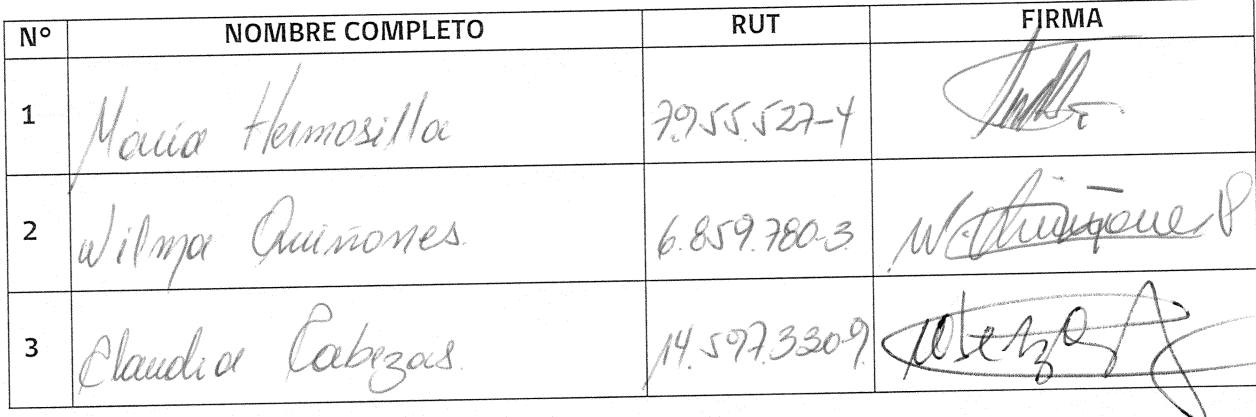 Nº NOMBRE COMPLETO RUT FIRMA
1 Maria Hermosilla 7.955.527-4
2 Wilma Quiñones. 6.859.780-3 W Quiñones P
3 Claudia Cabezas. 14.597.330-9